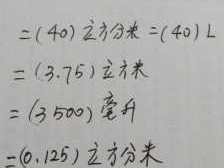 =(40)立方分米=(40)L
=(3.75)立方米
=(3500)毫升
=(0.125)立方分米